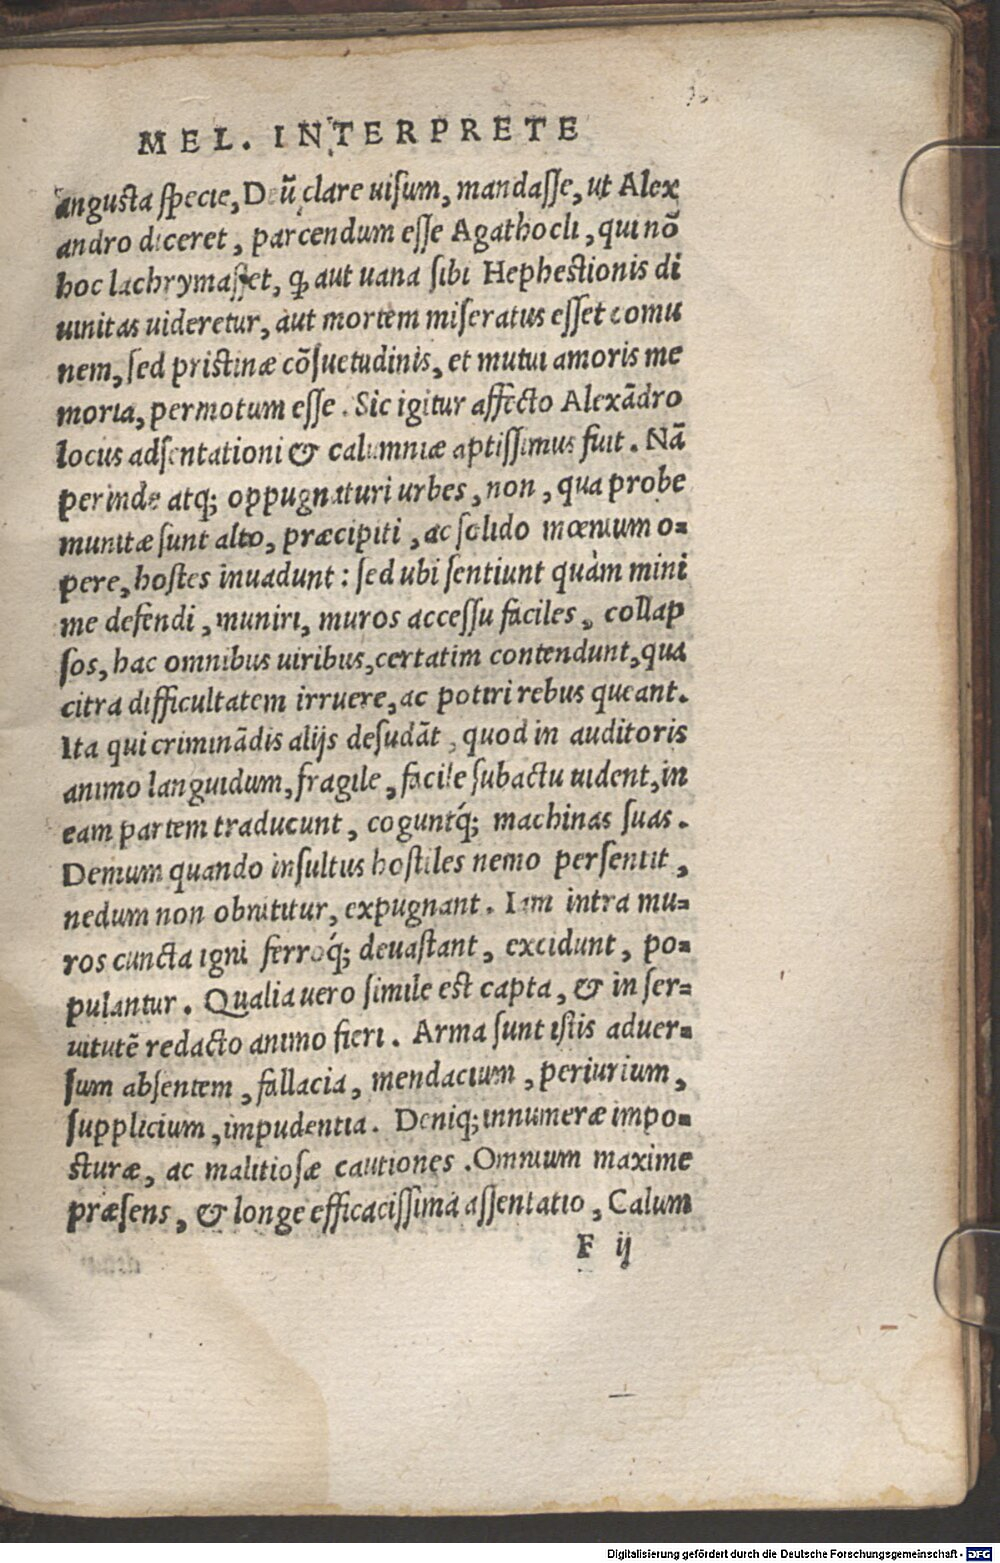 MEL. INTERPRETE
angusta specie, Deū clare uisum, mandasse, ut Alex
andro diceret, parcendum esse Agathocli, qui nō
hoc lachrymasset, ꝙ aut uana sibi Hephestionis di
uinitas uideretur, aut mortem miseratus esset comu
nem, sed pristinæ cōsuetudinis, et mutui amoris me
moria, permotum esse. Sic igitur affecto Alexādro
locus adsentationi & calumniæ aptissimus fuit. Nā
perinde atq; oppugnaturi urbes, non, qua probe
munitæ sunt alto, præcipiti, ac solido mœnium o-
pere, hostes inuadunt: sed ubi sentiunt quàm mini
me defendi, muniri, muros accessu faciles, collap
sos, hac omnibus uiribus, certatim contendunt, qua
citra difficultatem irruere, ac potiri rebus queant.
Ita qui criminādis alijs desudāt, quod in auditoris
animo languidum, fragile, facile subactu uident, in
eam partem traducunt, coguntq́; machinas suas.
Demum quando insultus hostiles nemo persentit,
nedum non obnititur, expugnant. Iam intra mu-
ros cuncta igni ferroq́; deuastant, excidunt, po-
pulantur. Qualia uero simile est capta, & in ser-
uitutē redacto animo fieri. Arma sunt istis aduer-
sum absentem, fallacia, mendacium, periurium,
supplicium, impudentia. Deniq; innumeræ impo-
sturæ, ac malitiosæ cautiones. Omnium maxime
præsens, & longe efficacissima assentatio, Calum
F ij
Digitalisierung gefördert durch die Deutsche Forschungsgemeinschaft - DFG